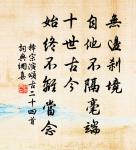 無邊刹境
自他不隔毫端
十世古今
始終不離當念
釋宗演頌古二十四首
詞典網集